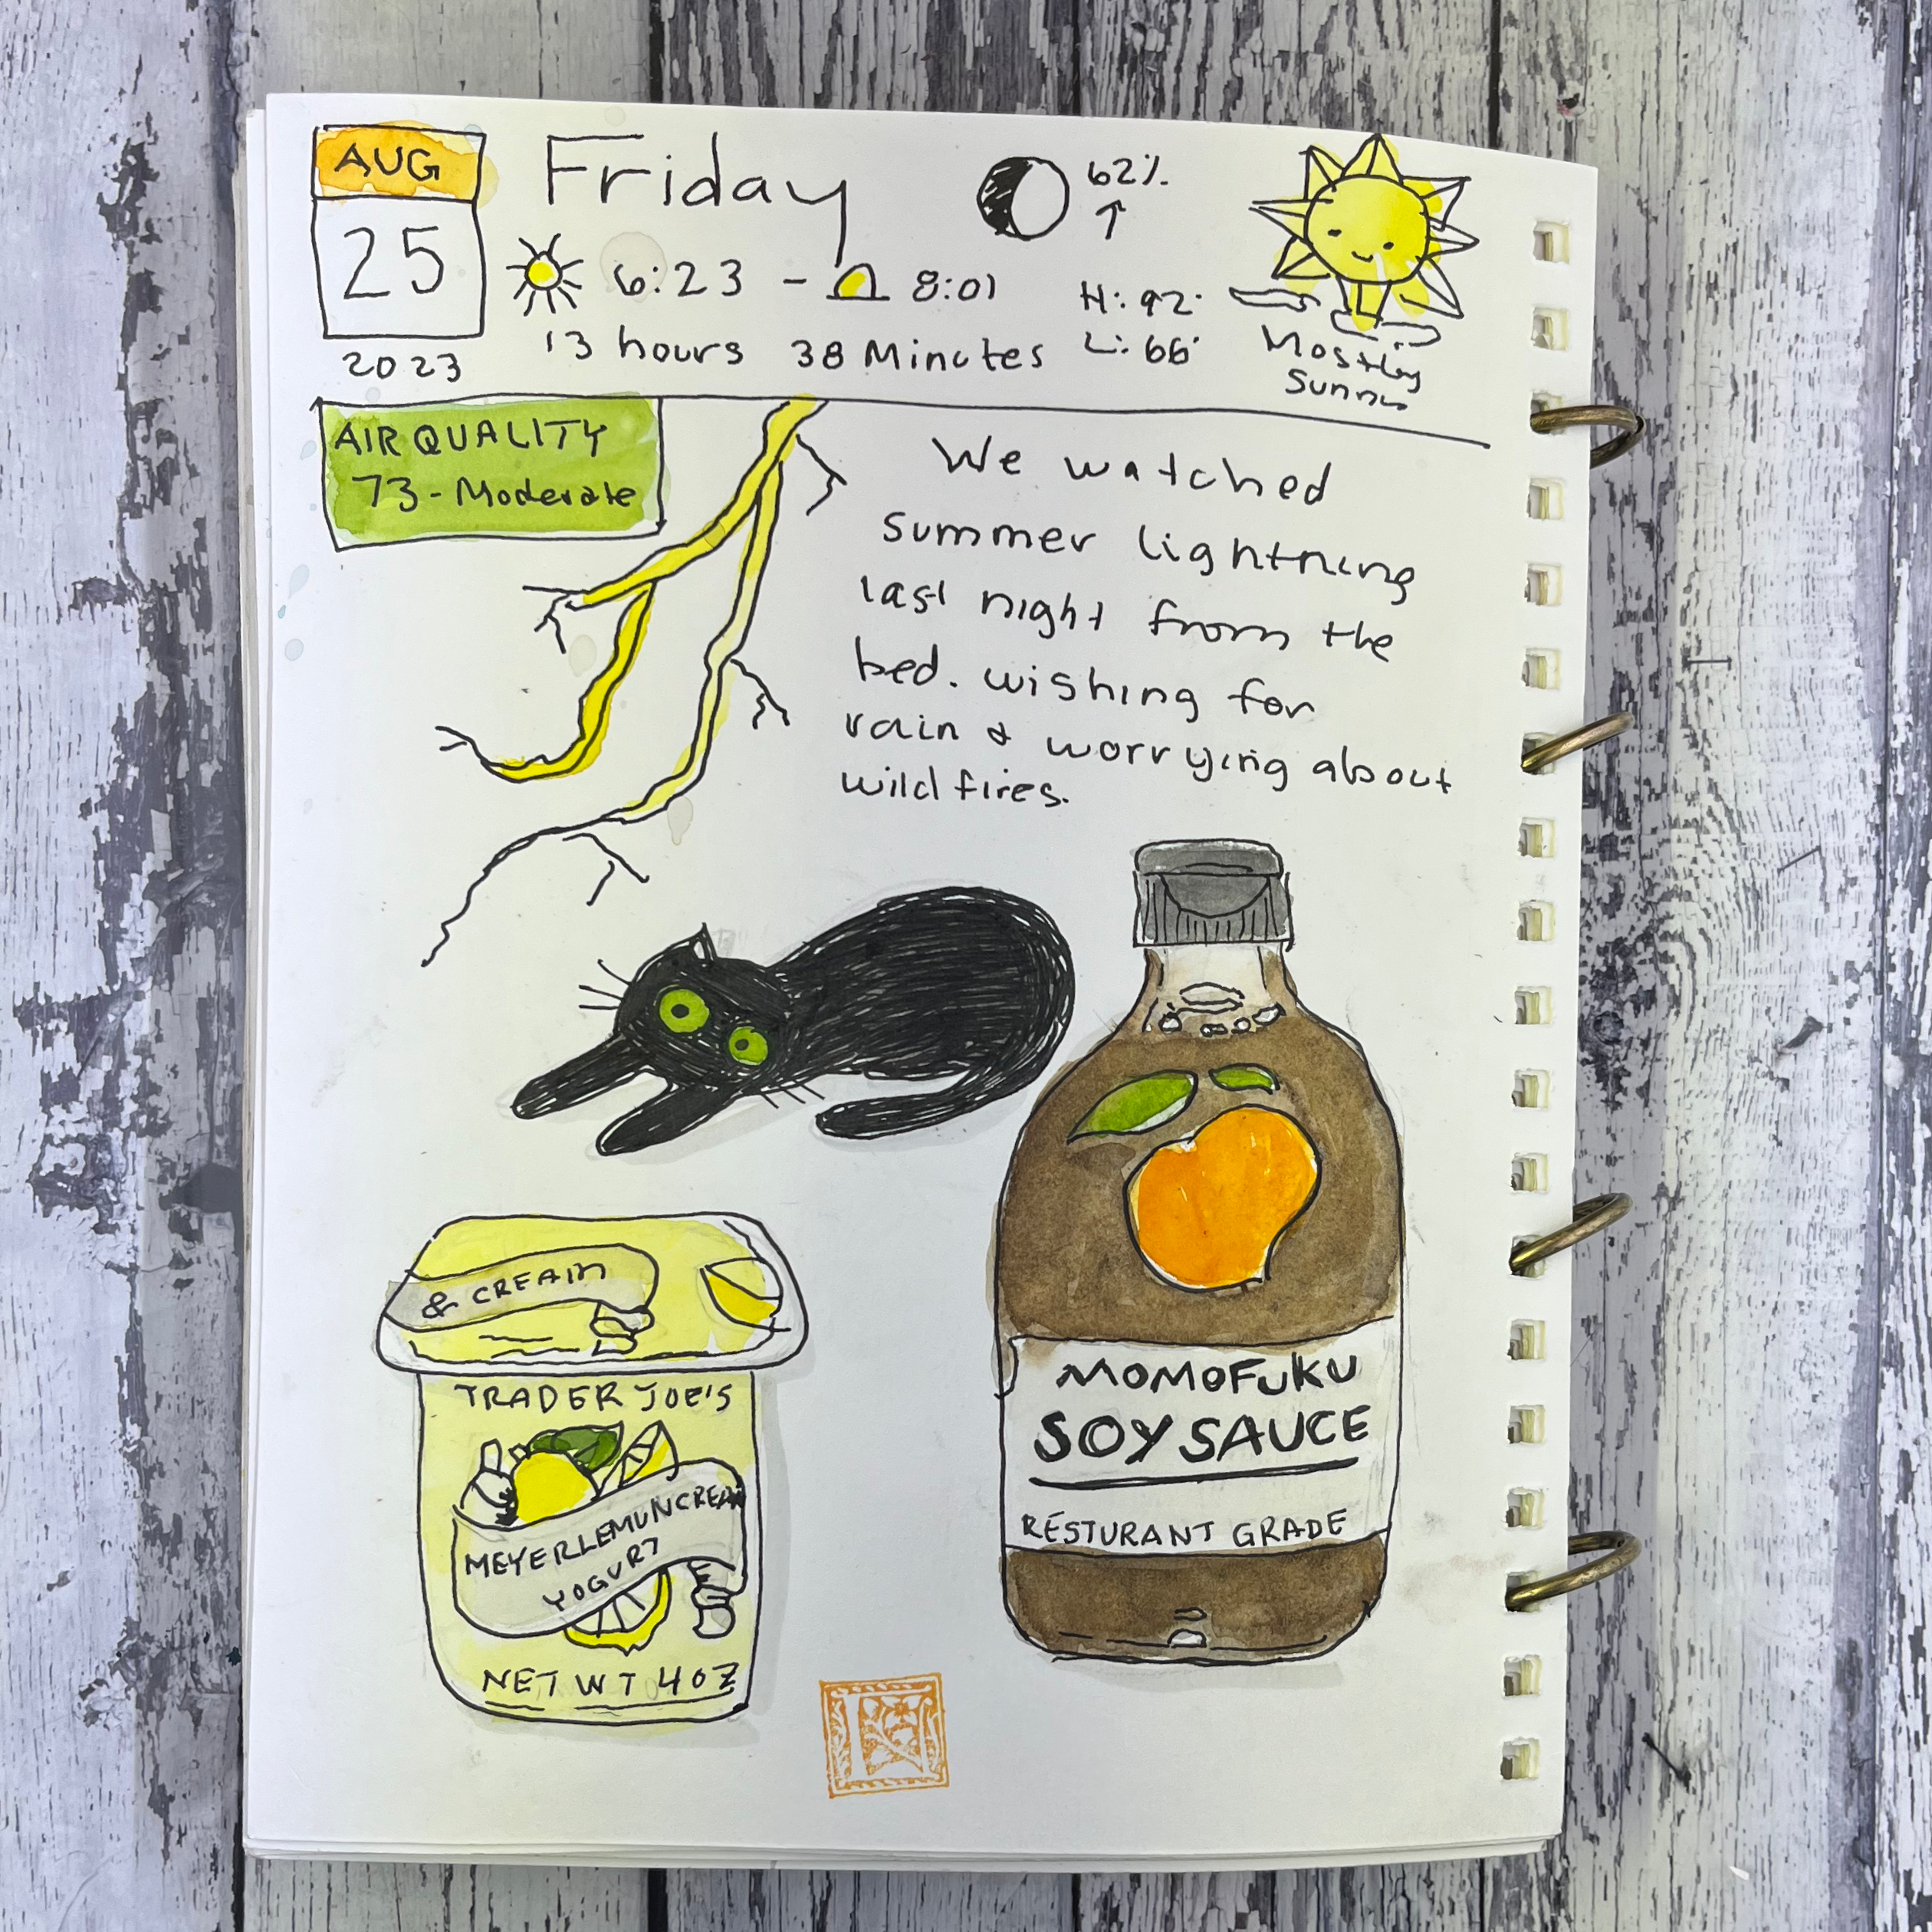 AUG
25
2023
Friday
62%
↑
6:23 - 8:01
13 hours 38 Minutes
H: 92°
L: 66°
Mostly
Sunny
AIR QUALITY
73 - Moderate
We watched
summer lightning
last night from the
bed. wishing for
rain & worrying about
wild fires.
& CREAM
TRADER JOE'S
MEYER LEMON CREAM
YOGURT
NET WT 4 OZ
MOMOFUKU
SOY SAUCE
RESTURANT GRADE